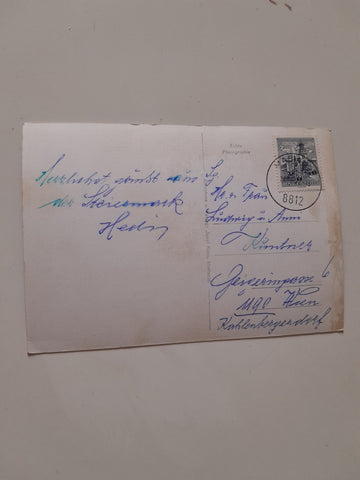 Herzlichst grüßt aus
der Steiermark
Hedy
Echte
Photographie
MARI
8812
Hr. u. Frau
Ludwig u. Anna
Kuntner
Geigeringasse 6
1190 Wien
Kahlenbergerdorf